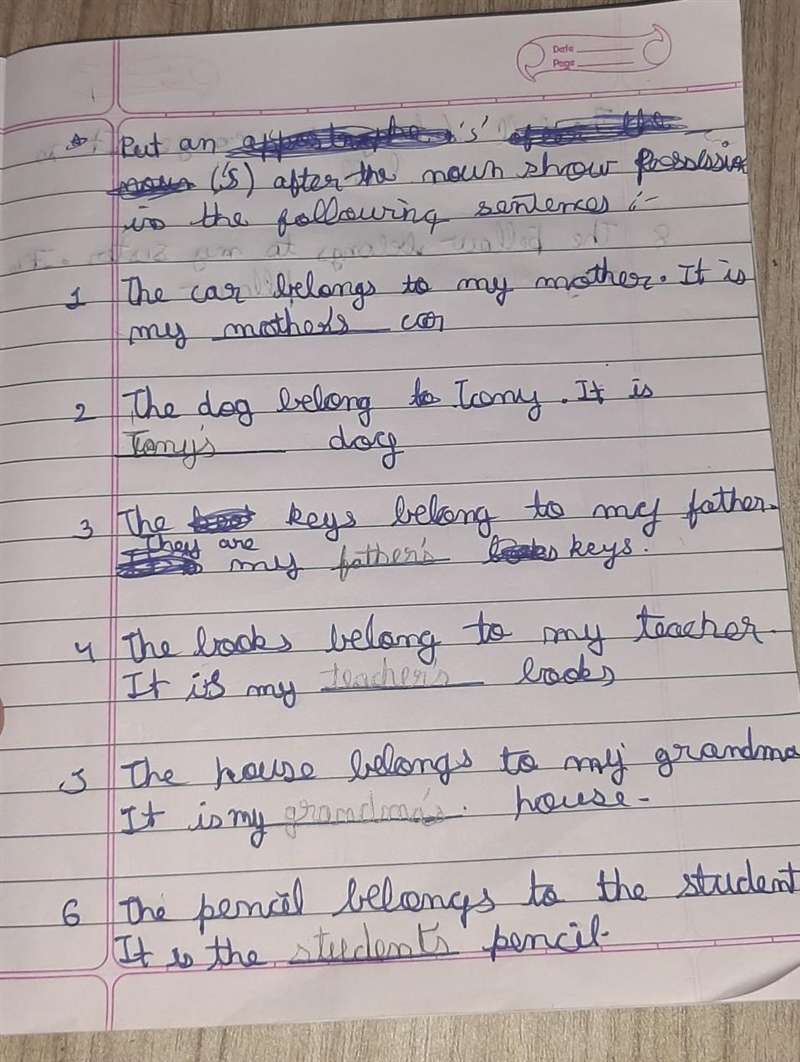 Date
Page
Put an 's'
('s) after the noun show Possession
in the following sentences :-
1 The car belongs to my mother. It is
my mother's car
2 The dog belong to Tony. It is
Tony's dog
3 The keys belong to my father.
They are my father's keys.
4 The books belong to my teacher
It is my teacher's books
5 The house belongs to my grandma
It is my grandma's. house-
6 The pencil belongs to the student
It is the student's pencil.